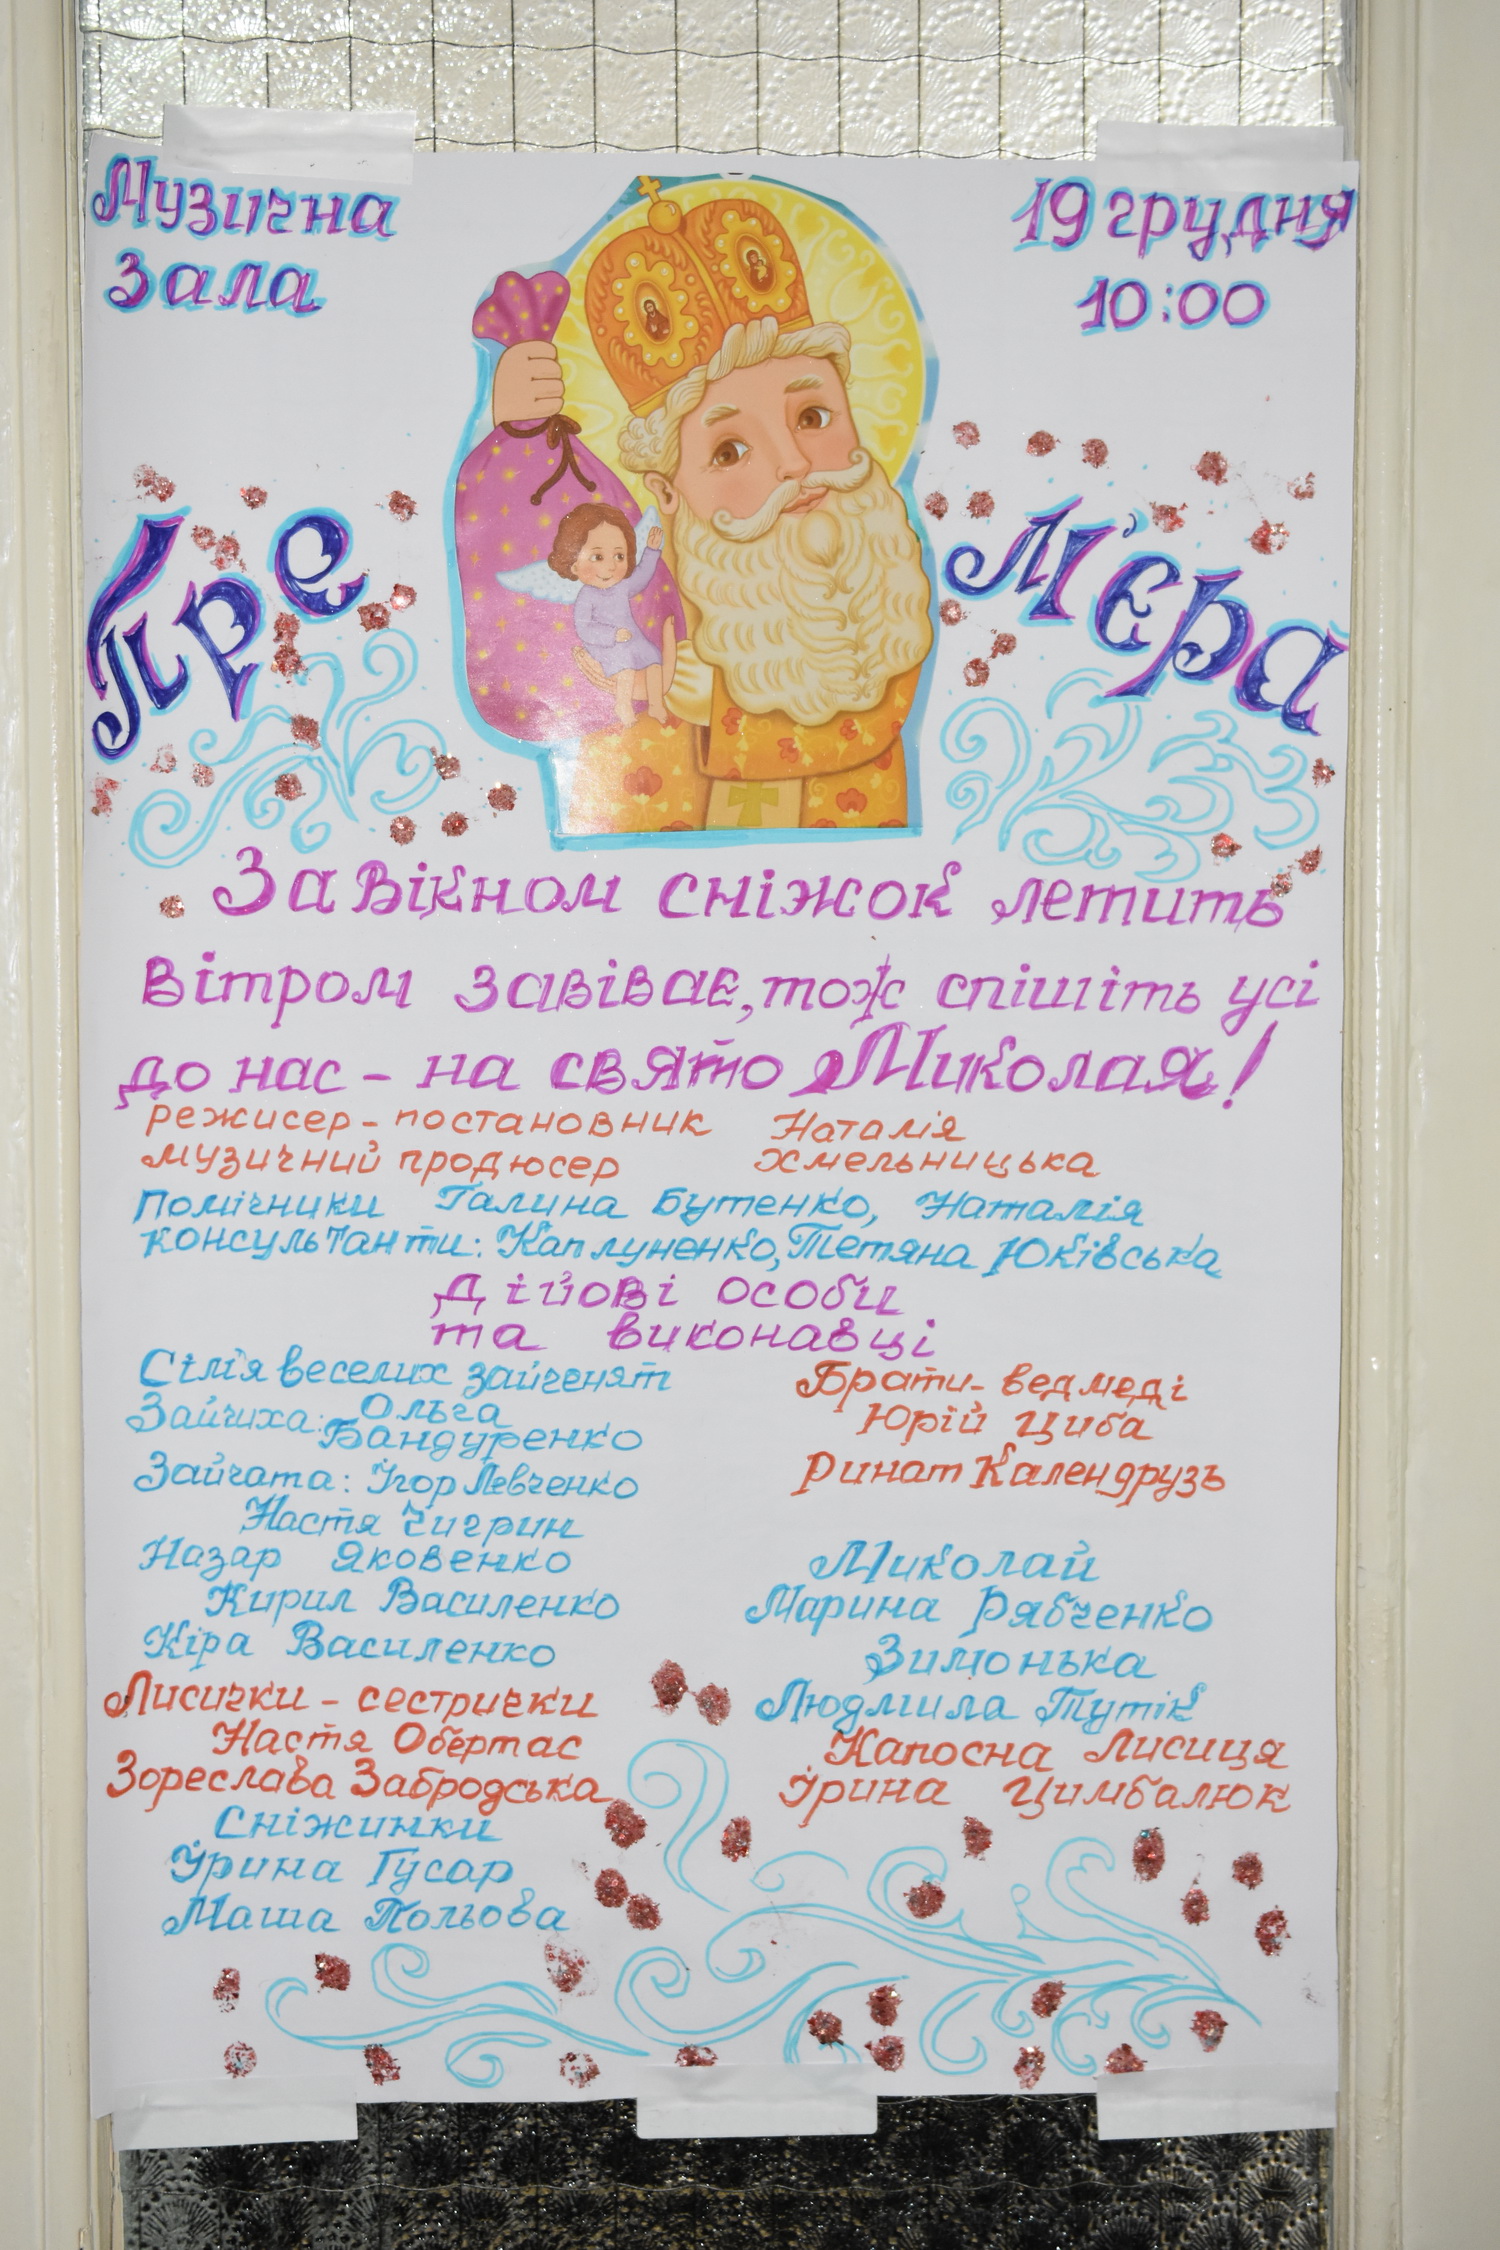 Музична
зала
19 грудня
10:00
Пре
м'єра
За вікном сніжок летить
вітром завіває, тож спішіть усі
до нас - на свято Миколая!
режисер - постановник Наталія
музичний продюсер Хмельницька
Помічники Галина Бутенко, Наталія
консультанти: Каплуненко, Тетяна Юківська
Дійові особи
та виконавці
Сімія веселих зайченят
Зайчиха: Ольга
Бандуренко
Зайчата: Ігор Левченко
Настя Чигрин
Назар Яковенко
Кирил Василенко
Кіра Василенко
Лисички - сестрички
Настя Обертас
Зореслава Забродська
Сніжинки
Ірина Гусар
Маша Польова
Брати - ведмеді
Юрій Циба
Ринат Календрузь
Миколай
Марина Рябченко
Зимонька
Людмила Тутік
Капосна Лисиця
Ірина Цимбалюк